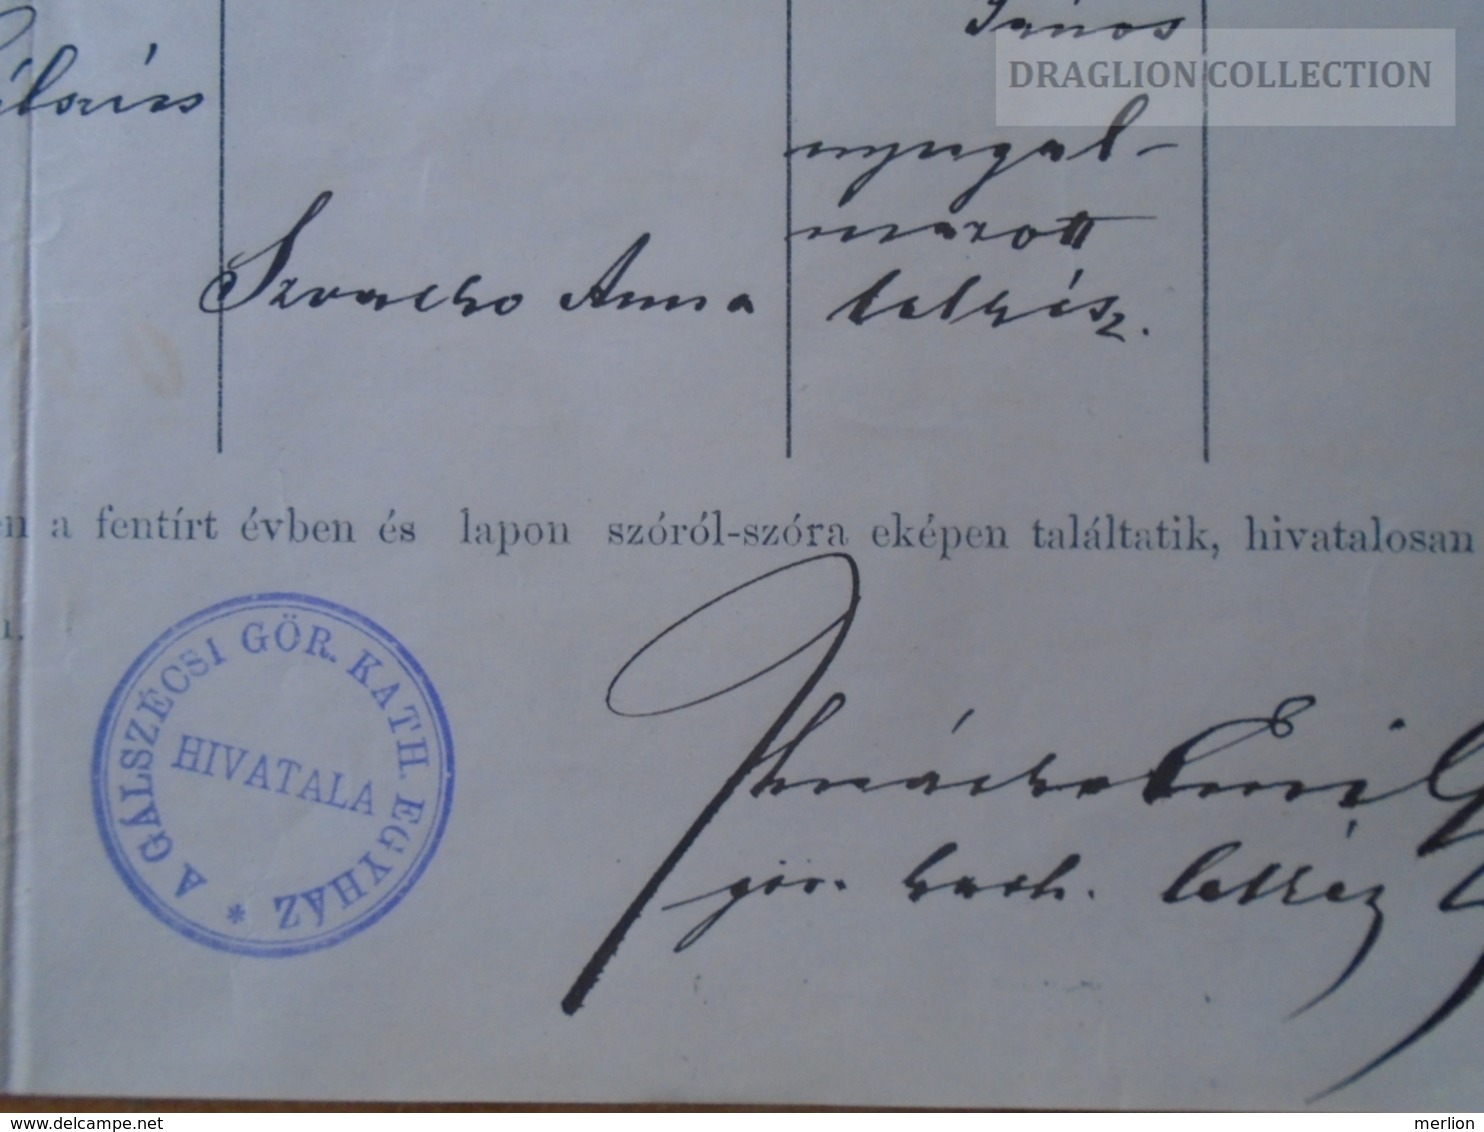 János
DRAGLION COLLECTION
nyugal-
mazott
Anna
lelkész.
a fentírt évben és lapon szóról-szóra eképen találtatik, hivatalosan
A GÁLSZÉCSI GÖR. KATH. EGYHÁZ *
HIVATALA
Emil
gör. kath. lelkész
delcampe.net
merlion